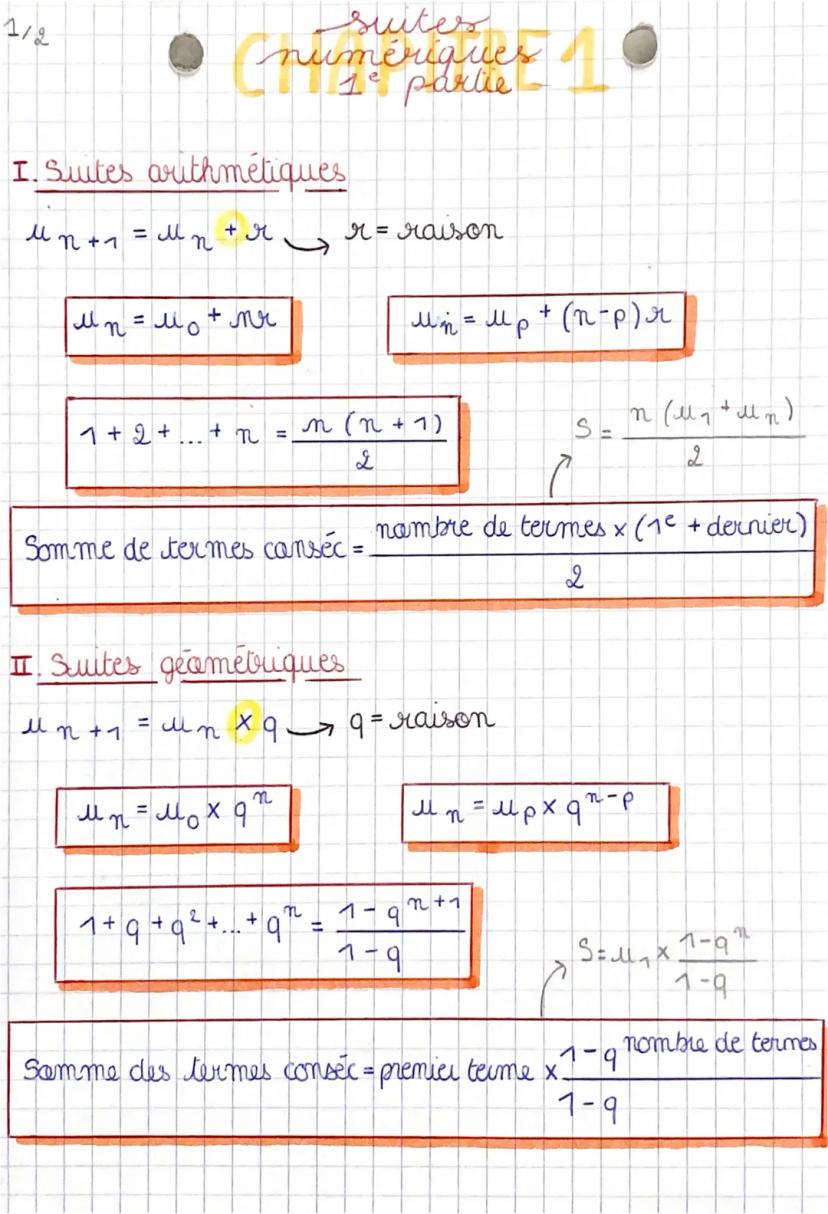 1/2
CHAPITRE 1
suites
numériques
1e partie
I. Suites arithmétiques
u n+1 = u n + r → r = raison
u n = u 0 + nr
u n = u p + (n-p) r
1 + 2 + ... + n = n (n + 1) / 2
S = n (u 1 + u n) / 2
Somme de termes conséc = nombre de termes x (1e + dernier) / 2
II. Suites géométriques
u n+1 = u n x q → q = raison
u n = u 0 x q^n
u n = u p x q^n-p
1 + q + q² + ... + q^n = 1 - q^n+1 / 1 - q
S = u 1 x 1-q^n / 1-q
Somme des termes conséc = premier terme x 1-q^nombre de termes / 1-q